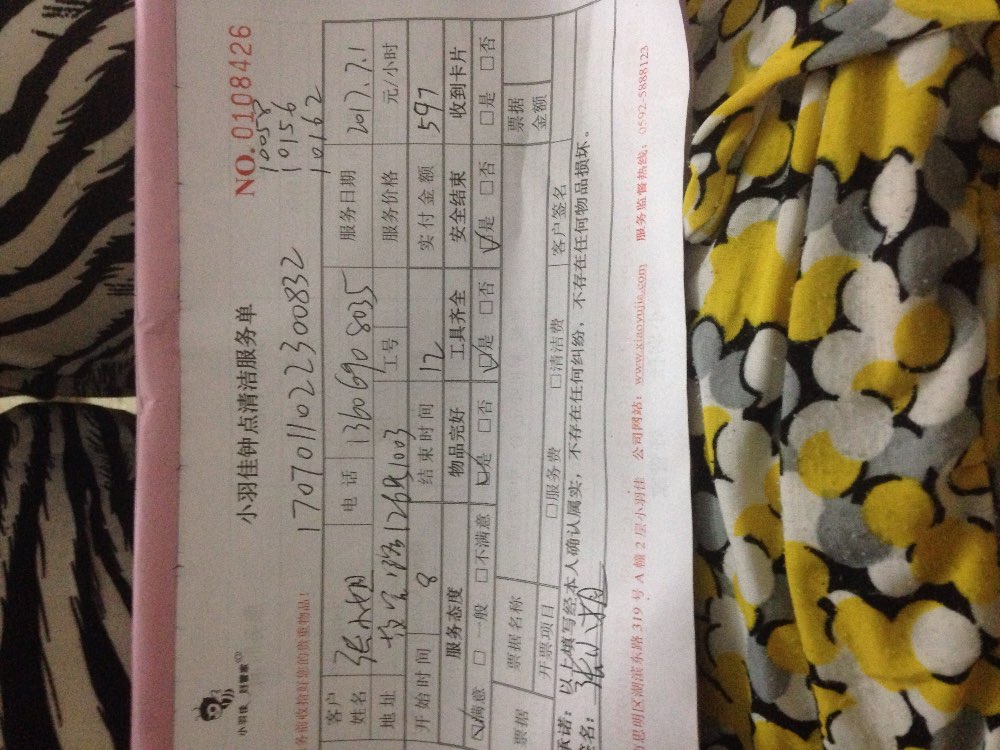 小羽佳 到家家
小羽佳钟点清洁服务单
NO. 0108426
10058
10156
10162
1707011022300832
务前收拾好您的贵重物品！
客户姓名 张小姐 电话 13606908035 服务日期 2017.7.1
地址 1003 工号 服务价格 元/小时
开始时间 8 结束时间 12 实付金额 597
服务态度 物品完好 工具齐全 安全结束 收到卡片
☑满意 □一般 □不满意 ☑是 □否 ☑是 □否 ☑是 □否 □是 □否
票据 票据名称 票据金额
开票项目 □服务费 □清洁费 客户签名
承诺：以上填写经本人确认属实，不存在任何纠纷，不存在任何物品损坏。
签名：张小姐
思明区湖滨东路 319 号 A 幢 2 层小羽佳 公司网站：www.xiaoyujia.com 服务监督热线：0592-5888123